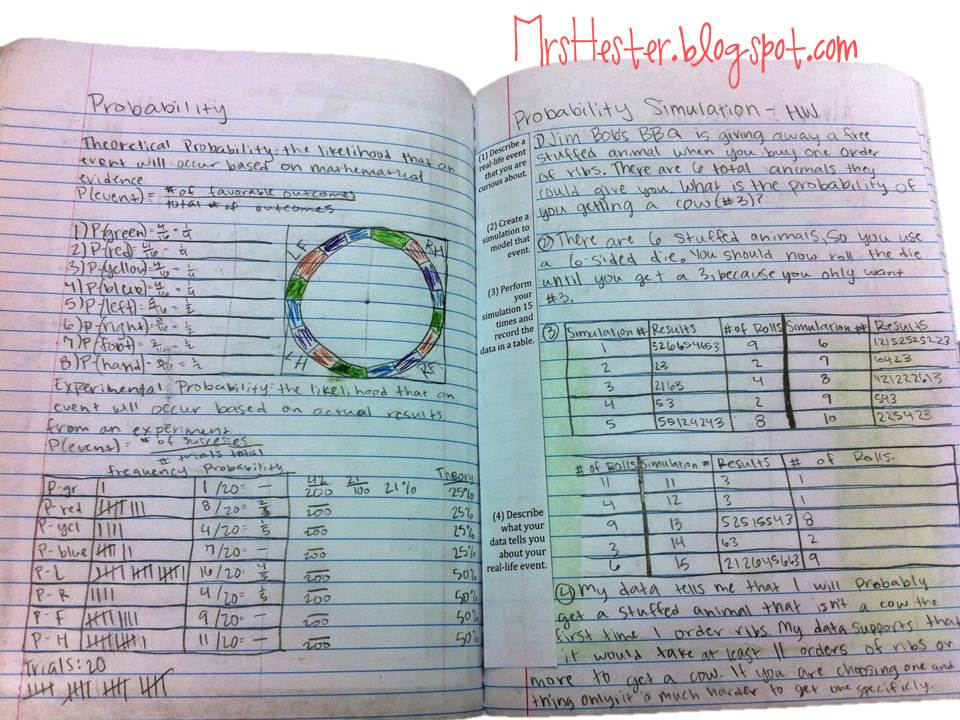 MrsHester.blogspot.com
Probability
Theoretical Probability: the likelihood that an
event will occur based on mathematical
evidence
P(event) = # of favorable outcomes
total # of outcomes
1) P(green) = 4/16 = 1/4
2) P(red) = 4/16 = 1/4
3) P(yellow) = 4/16 = 1/4
4) P(blue) = 4/16 = 1/4
5) P(left) = 8/16 = 1/2
6) P(right) = 8/16 = 1/2
7) P(foot) = 8/16 = 1/2
8) P(hand) = 8/16 = 1/2
LF
RH
LH
RF
Experimental Probability: the likelihood that an
event will occur based on actual results
from an experiment.
P(event) = # of successes
# trials total
frequency Probability
Theory
P-gr 1/20= — 42/200 21/100 21% 25%
P-red 8/20= 2/5 /200 25%
P-yel 4/20= 1/5 /200 25%
P-blue 7/20= — /200 25%
P-L 16/20= 4/5 /200 50%
P-R 4/20= 1/5 /200 50%
P-F 9/20= — /200 50%
P-H 11/20= — /200 50%
Trials: 20
Probability Simulation - HW
(1) Describe a
real-life event
that you are
curious about.
(2) Create a
simulation to
model that
event.
(3) Perform
your
simulation 15
times and
record the
data in a table.
(4) Describe
what your
data tells you
about your
real-life event.
① Jim Bob's BBQ is giving away a free
stuffed animal when you buy one order
of ribs. There are 6 total animals they
could give you. What is the probability of
you getting a cow (#3)?
② There are 6 stuffed animals, so you use
a 6-sided die. You should now roll the die
until you get a 3, because you only want
#3.
③ Simulation # Results # of Rolls Simulation # Results
1 526654653 9 6 12152525223
2 23 2 7 6423
3 2163 4 8 421222613
4 53 2 9 543
5 55124243 8 10 225423
# of Rolls Simulation # Results # of Rolls.
11 11 3 1
4 12 3 1
9 13 52515543 8
3 14 63 2
6 15 212645663 9
④ My data tells me that I will probably
get a stuffed animal that isn't a cow the
first time I order ribs. My data supports that
it would take at least 11 orders of ribs or
more to get a cow. If you are choosing one and
thing only, it is much harder to get one specificly.